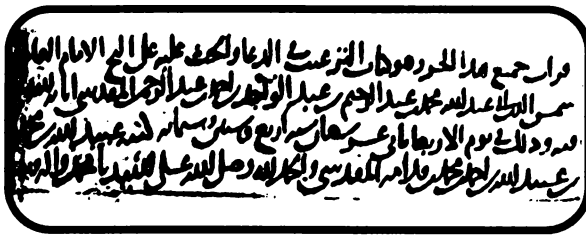 قرات جميع هذا الجزء وهو كتاب الترغيب في الدعا والحث عليه على الشيخ الامام العالم
شمس الدين ابي عبد الله محمد بن عبد الرحيم بن عبد الواحد بن احمد بن عبد الرحمن المقدسي
وذلك في يوم الاربعا ثاني عشر شعبان سنه اربع وستين وستمائه كتبه عبيد الله بن محمد
بن عبيد الله بن احمد بن محمد بن قدامه المقدسي والحمد لله وصلى الله على محمد واله